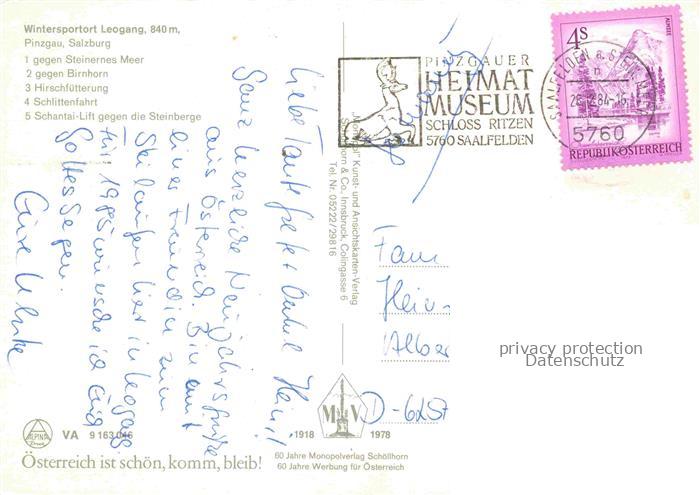 Wintersportort Leogang, 840 m,
Pinzgau, Salzburg
1 gegen Steinernes Meer
2 gegen Birnhorn
3 Hirschfütterung
4 Schlittenfahrt
5 Schantai-Lift gegen die Steinberge
PINZGAUER
HEIMAT
MUSEUM
SCHLOSS RITZEN
5760 SAALFELDEN
SAALFELDEN a. STEIN.
5760
4S
ALMSEE
REPUBLIK ÖSTERREICH
Liebe Tante Grete + Onkel Heini!
Ganz herzliche Neujahrsgrüße
aus Österreich. Bin mit
einer Freundin zum
Skilaufen hier in Leogang.
Für 1985 wünsche ich Euch
Gottes Segen.
Eure Ulrike
Kunst- und Ansichtskarten-Verlag
Schöllhorn & Co., Innsbruck, Colingasse 6
Tel. Nr. 05222/29816
Fam
Hein
Alber
D-62
privacy protection
Datenschutz
ALPINA
Druck
VA 9 163 046
Österreich ist schön, komm, bleib!
M V
1918 1978
60 Jahre Monopolverlag Schöllhorn
60 Jahre Werbung für Österreich